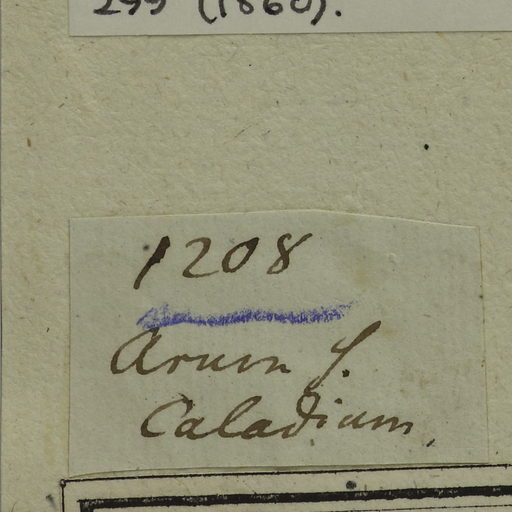 299 (1860).
1208
Arum f.
Caladium.